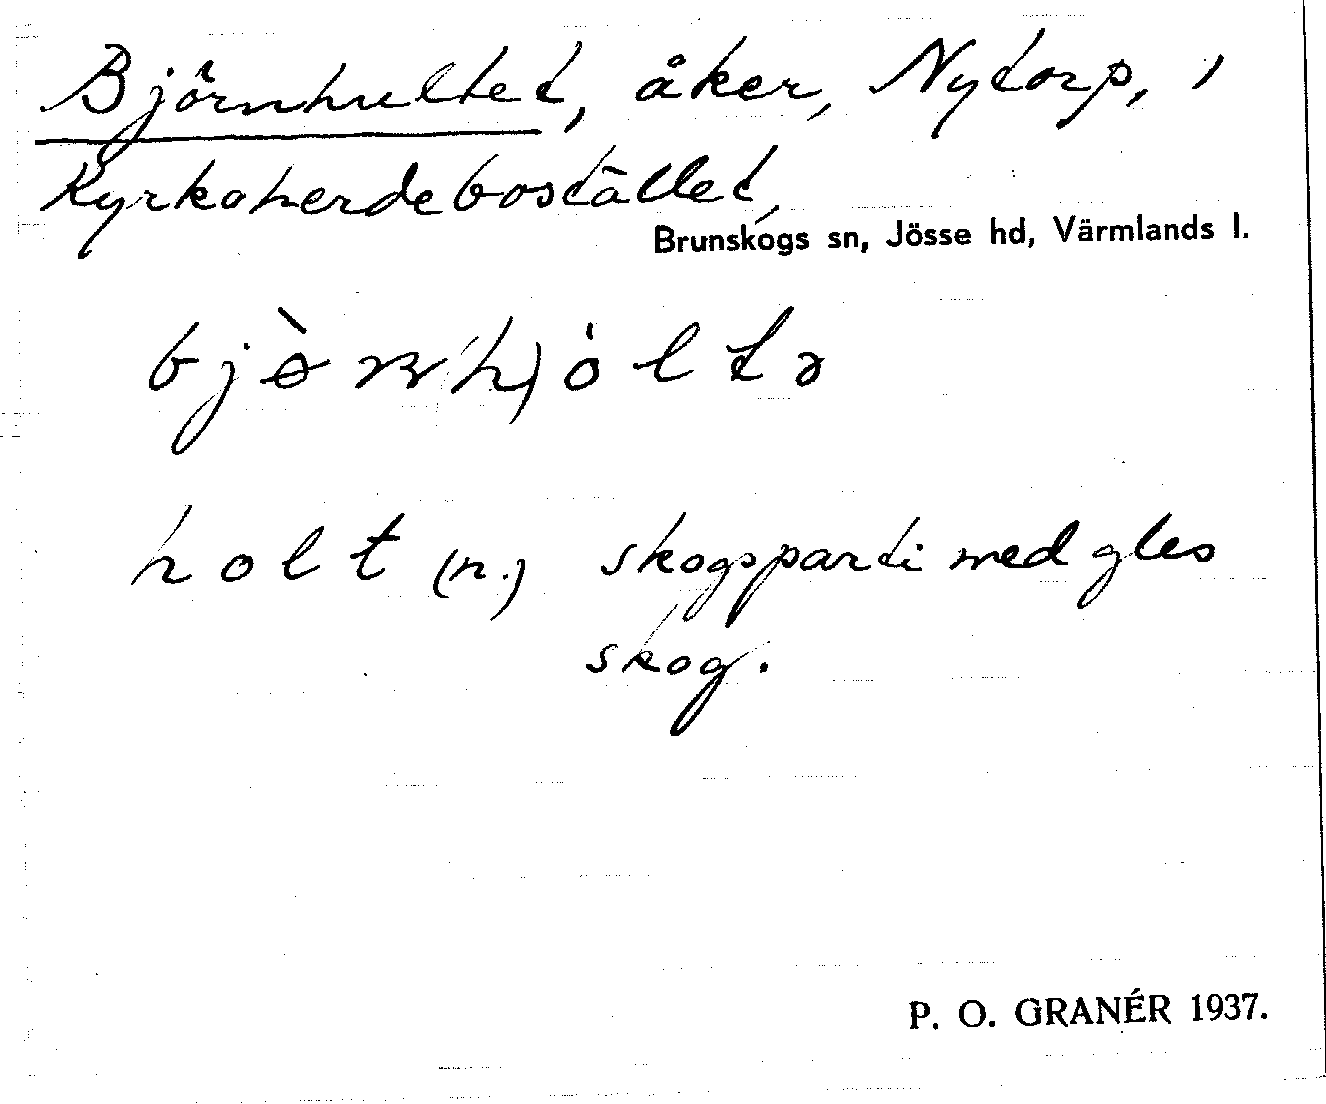 Björnhultet, åker, Nytorp, 1
Kyrkoherdebostället,
Brunskogs sn, Jösse hd, Värmlands l.
holt (n.) skogsparti med gles
skog.
P. O. GRANÉR 1937.